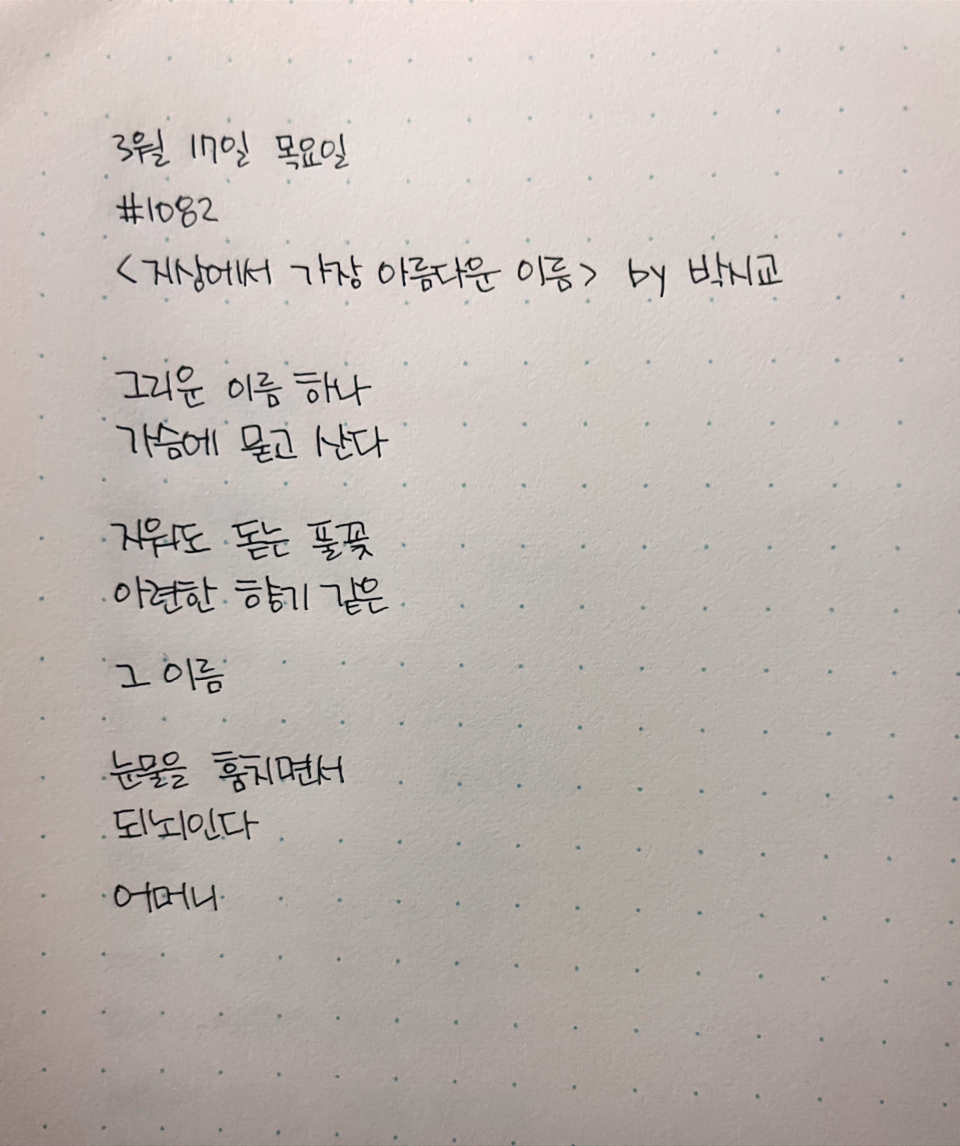 3월 17일 목요일
#1082
<지상에서 가장 아름다운 이름> by 박시교
그리운 이름 하나
가슴에 묻고 산다
지워도 돋는 풀꽃
아련한 향기 같은
그 이름
눈물을 훔치면서
되뇌인다
어머니